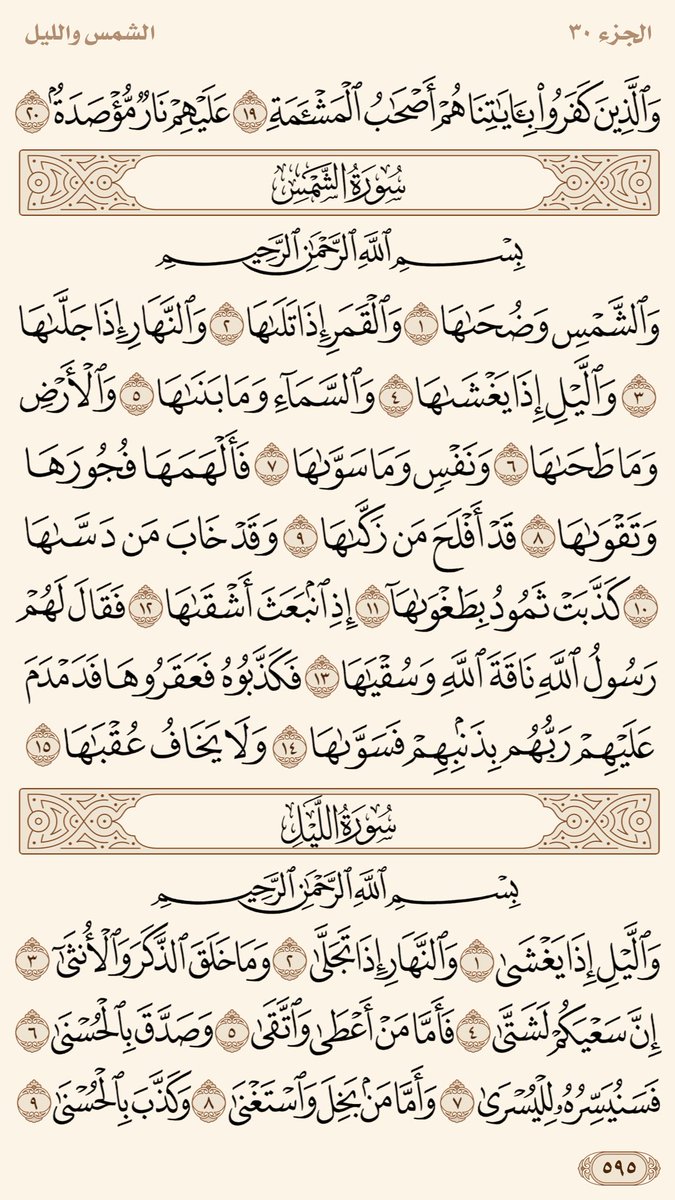 الجزء ٣٠
الشمس والليل
وَٱلَّذِينَ كَفَرُوا۟ بِـَٔايَـٰتِنَا هُمْ أَصْحَـٰبُ ٱلْمَشْـَٔمَةِ ١٩ عَلَيْهِمْ نَارٌۭ مُّؤْصَدَةٌۢ ٢٠
سُورَةُ الشَّمْسِ
بِسْمِ ٱللَّهِ ٱلرَّحْمَـٰنِ ٱلرَّحِيمِ
وَٱلشَّمْسِ وَضُحَىٰهَا ١ وَٱلْقَمَرِ إِذَا تَلَىٰهَا ٢ وَٱلنَّهَارِ إِذَا جَلَّىٰهَا
٣ وَٱلَّيْلِ إِذَا يَغْشَىٰهَا ٤ وَٱلسَّمَآءِ وَمَا بَنَىٰهَا ٥ وَٱلْأَرْضِ
وَمَا طَحَىٰهَا ٦ وَنَفْسٍۢ وَمَا سَوَّىٰهَا ٧ فَأَلْهَمَهَا فُجُورَهَا
وَتَقْوَىٰهَا ٨ قَدْ أَفْلَحَ مَن زَكَّىٰهَا ٩ وَقَدْ خَابَ مَن دَسَّىٰهَا
١٠ كَذَّبَتْ ثَمُودُ بِطَغْوَىٰهَآ ١١ إِذِ ٱنۢبَعَثَ أَشْقَىٰهَا ١٢ فَقَالَ لَهُمْ
رَسُولُ ٱللَّهِ نَاقَةَ ٱللَّهِ وَسُقْيَـٰهَا ١٣ فَكَذَّبُوهُ فَعَقَرُوهَا فَدَمْدَمَ
عَلَيْهِمْ رَبُّهُم بِذَنۢبِهِمْ فَسَوَّىٰهَا ١٤ وَلَا يَخَافُ عُقْبَـٰهَا ١٥
سُورَةُ اللَّيْلِ
بِسْمِ ٱللَّهِ ٱلرَّحْمَـٰنِ ٱلرَّحِيمِ
وَٱلَّيْلِ إِذَا يَغْشَىٰ ١ وَٱلنَّهَارِ إِذَا تَجَلَّىٰ ٢ وَمَا خَلَقَ ٱلذَّكَرَ وَٱلْأُنثَىٰٓ ٣
إِنَّ سَعْيَكُمْ لَشَتَّىٰ ٤ فَأَمَّا مَنْ أَعْطَىٰ وَٱتَّقَىٰ ٥ وَصَدَّقَ بِٱلْحُسْنَىٰ ٦
فَسَنُيَسِّرُهُۥ لِلْيُسْرَىٰ ٧ وَأَمَّا مَنۢ بَخِلَ وَٱسْتَغْنَىٰ ٨ وَكَذَّبَ بِٱلْحُسْنَىٰ ٩
٥٩٥